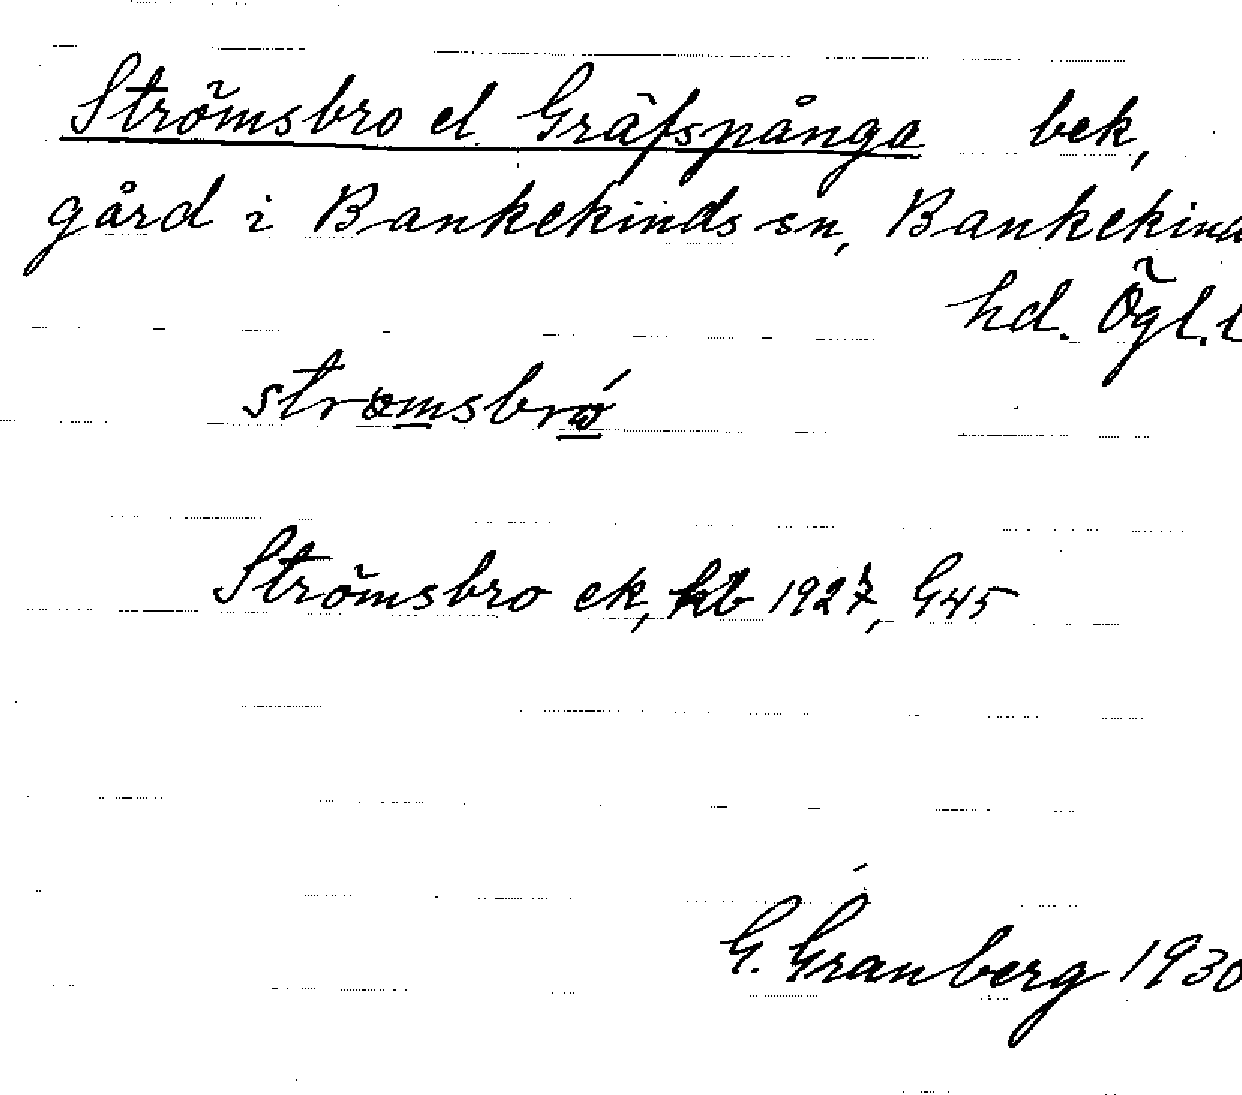 Strömsbro el. Gräfspånga bek,
gård i Bankekinds sn, Bankekind
hd. Ögl. l
strömsbrω
Strömsbro ek, kb 1927, G45
G. Granberg 1930